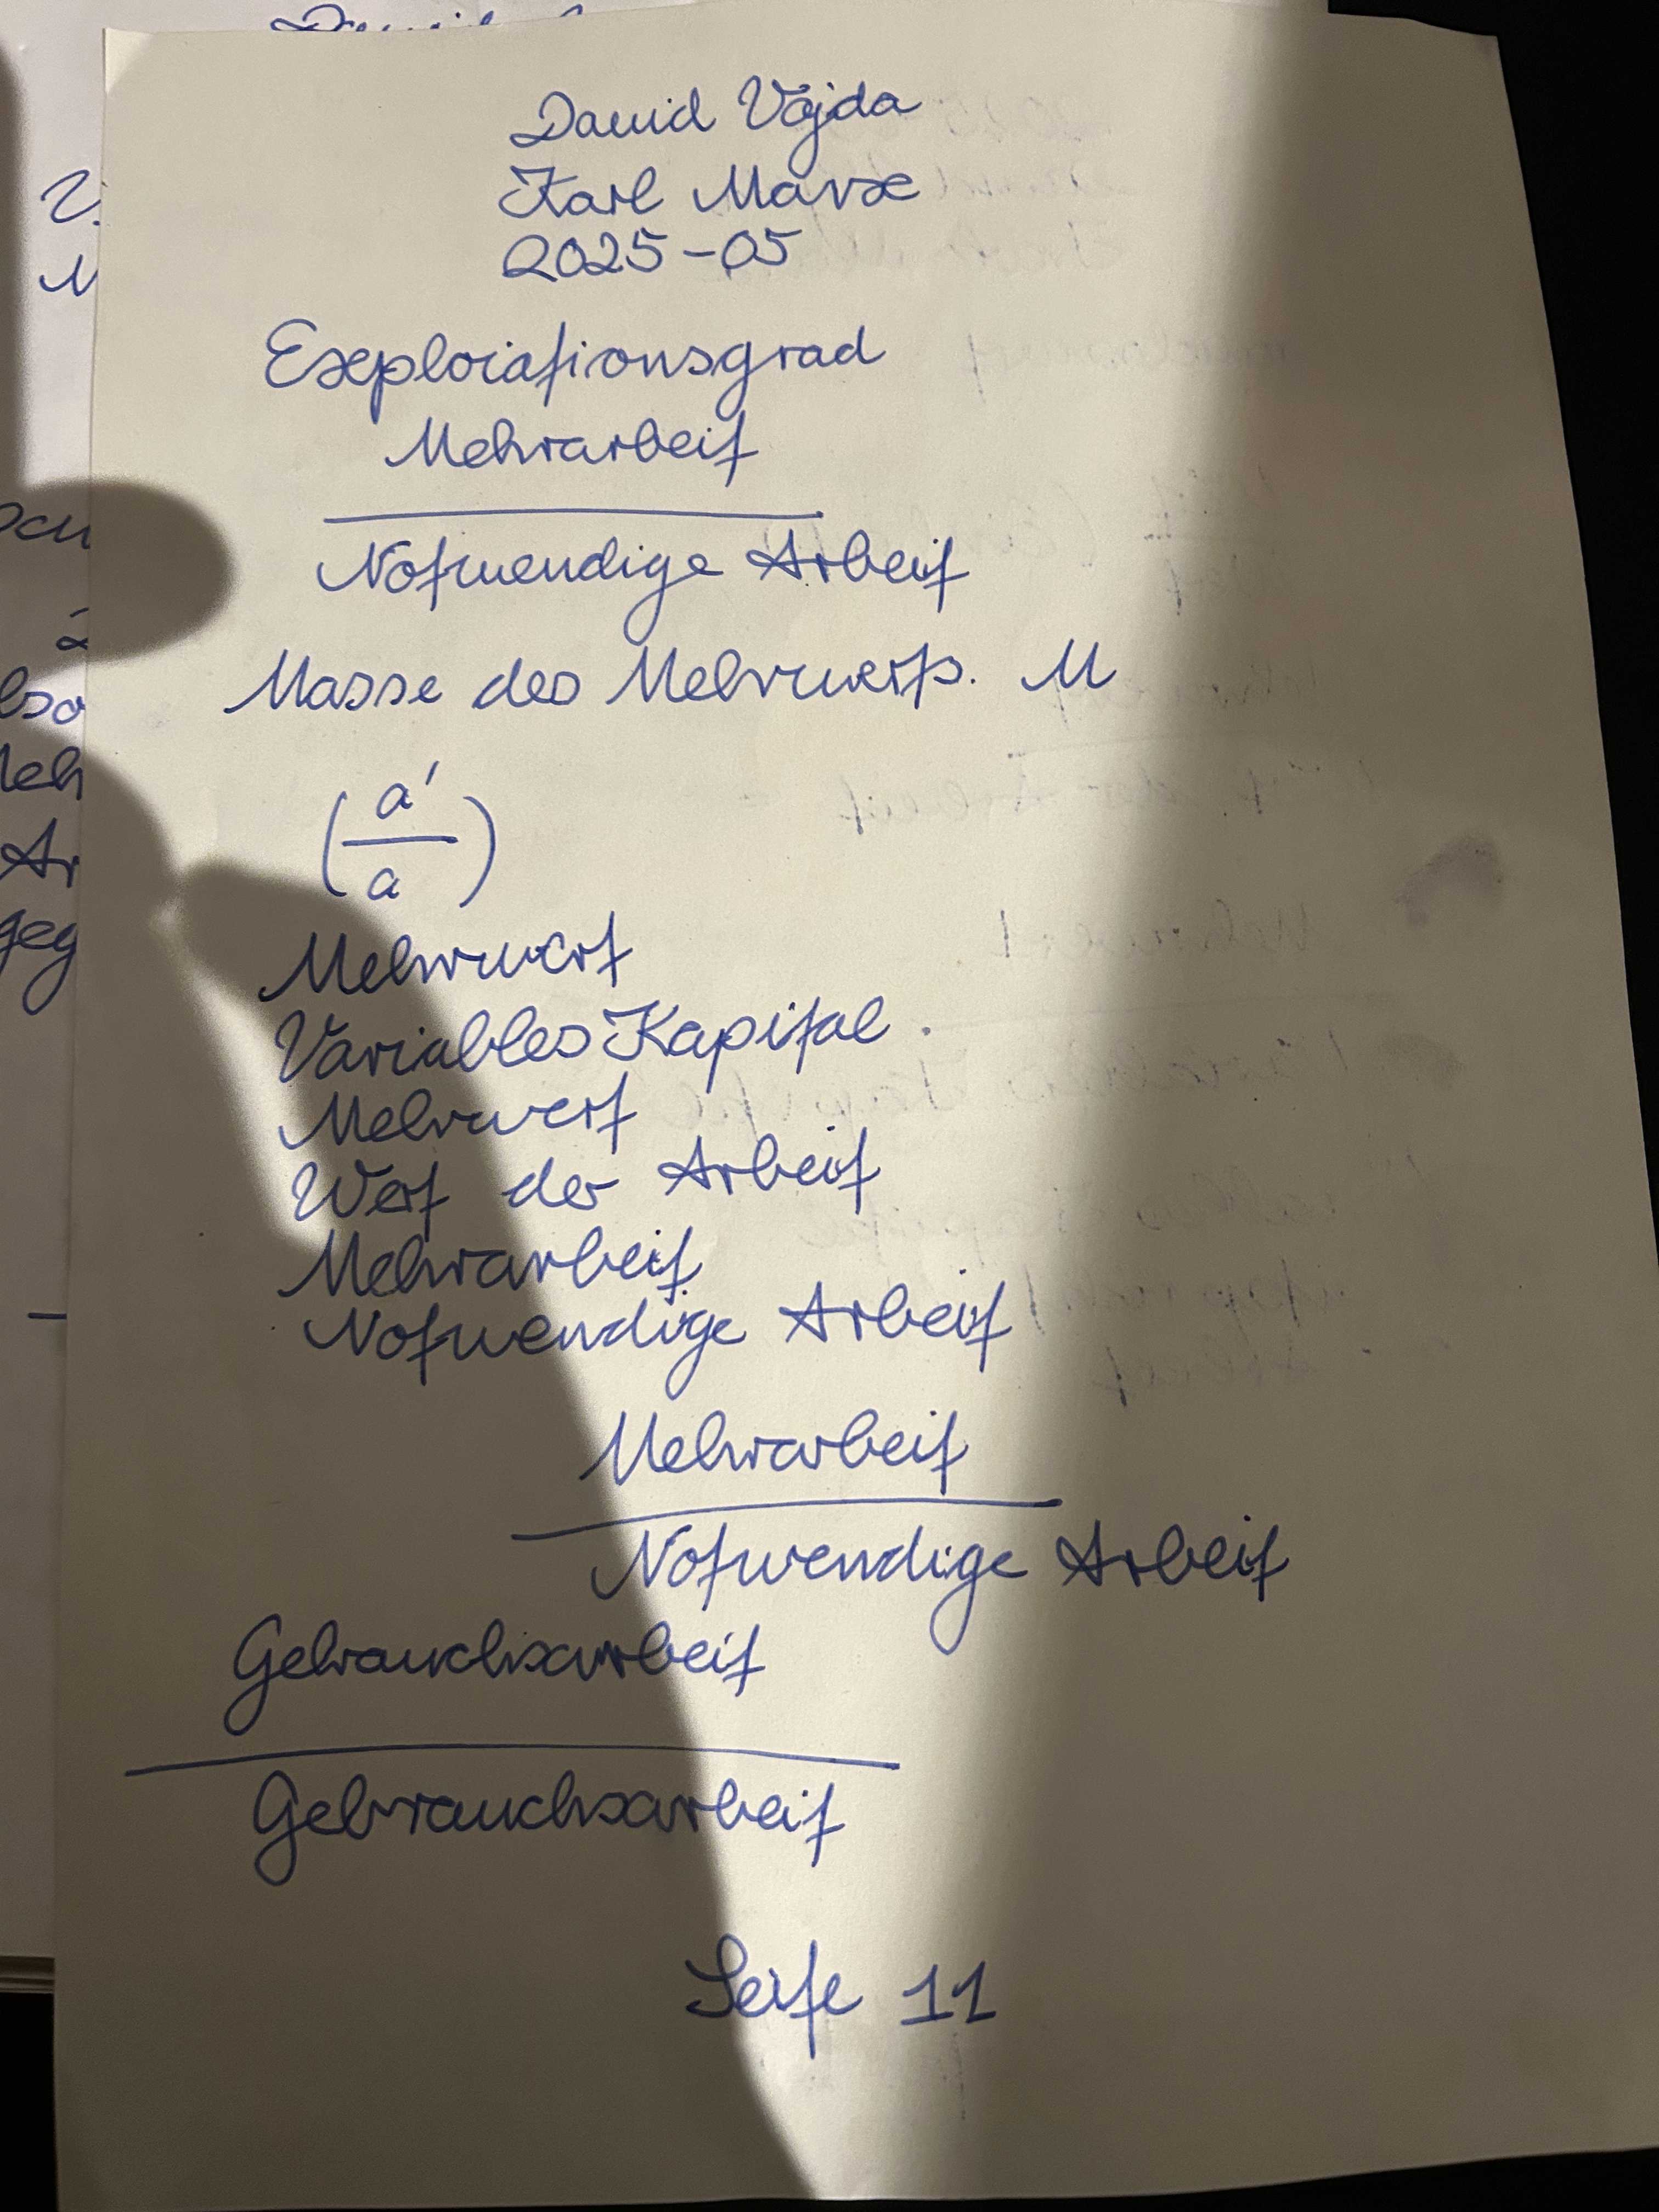 David Vajda
Karl Marx
2025-05
Exploiationsgrad
Mehrarbeit
Notwendige Arbeit
Masse des Mehrwerts. M
(a'/a)
Mehrwert
Variables Kapital.
Mehrwert
Wert der Arbeit
Mehrarbeit
Notwendige Arbeit
Mehrarbeit
Notwendige Arbeit
Gebrauchsarbeit
Gebrauchsarbeit
Seite 11